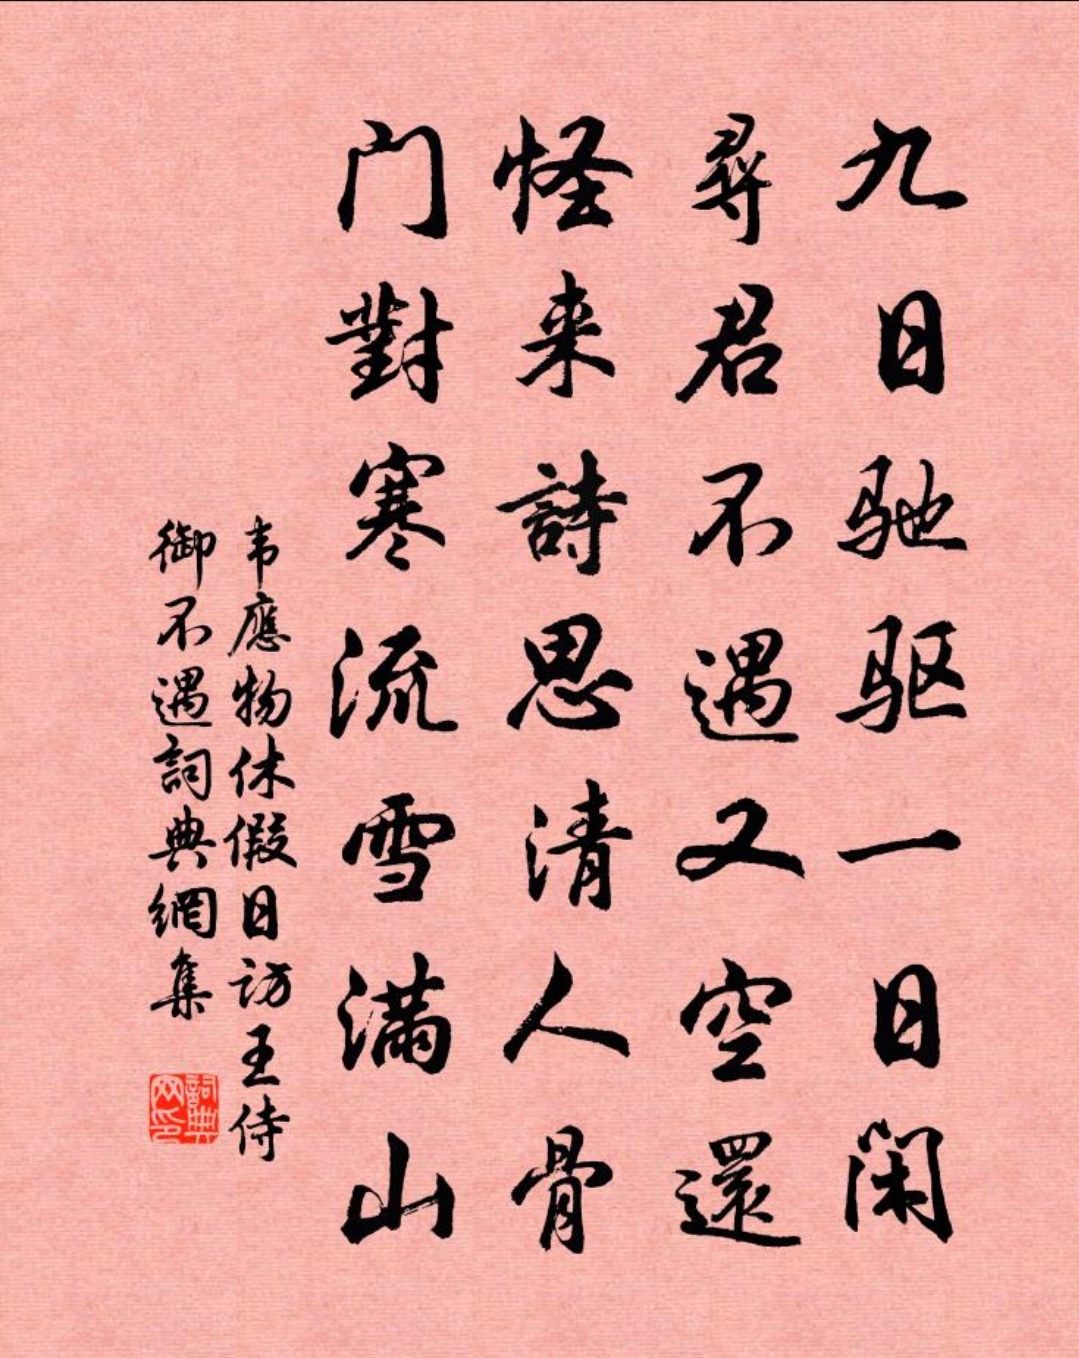 九日驰驱一日闲
尋君不遇又空還
怪来詩思清人骨
门對寒流雪满山
韦應物休假日访王侍
御不遇詞典網集
詞典网印